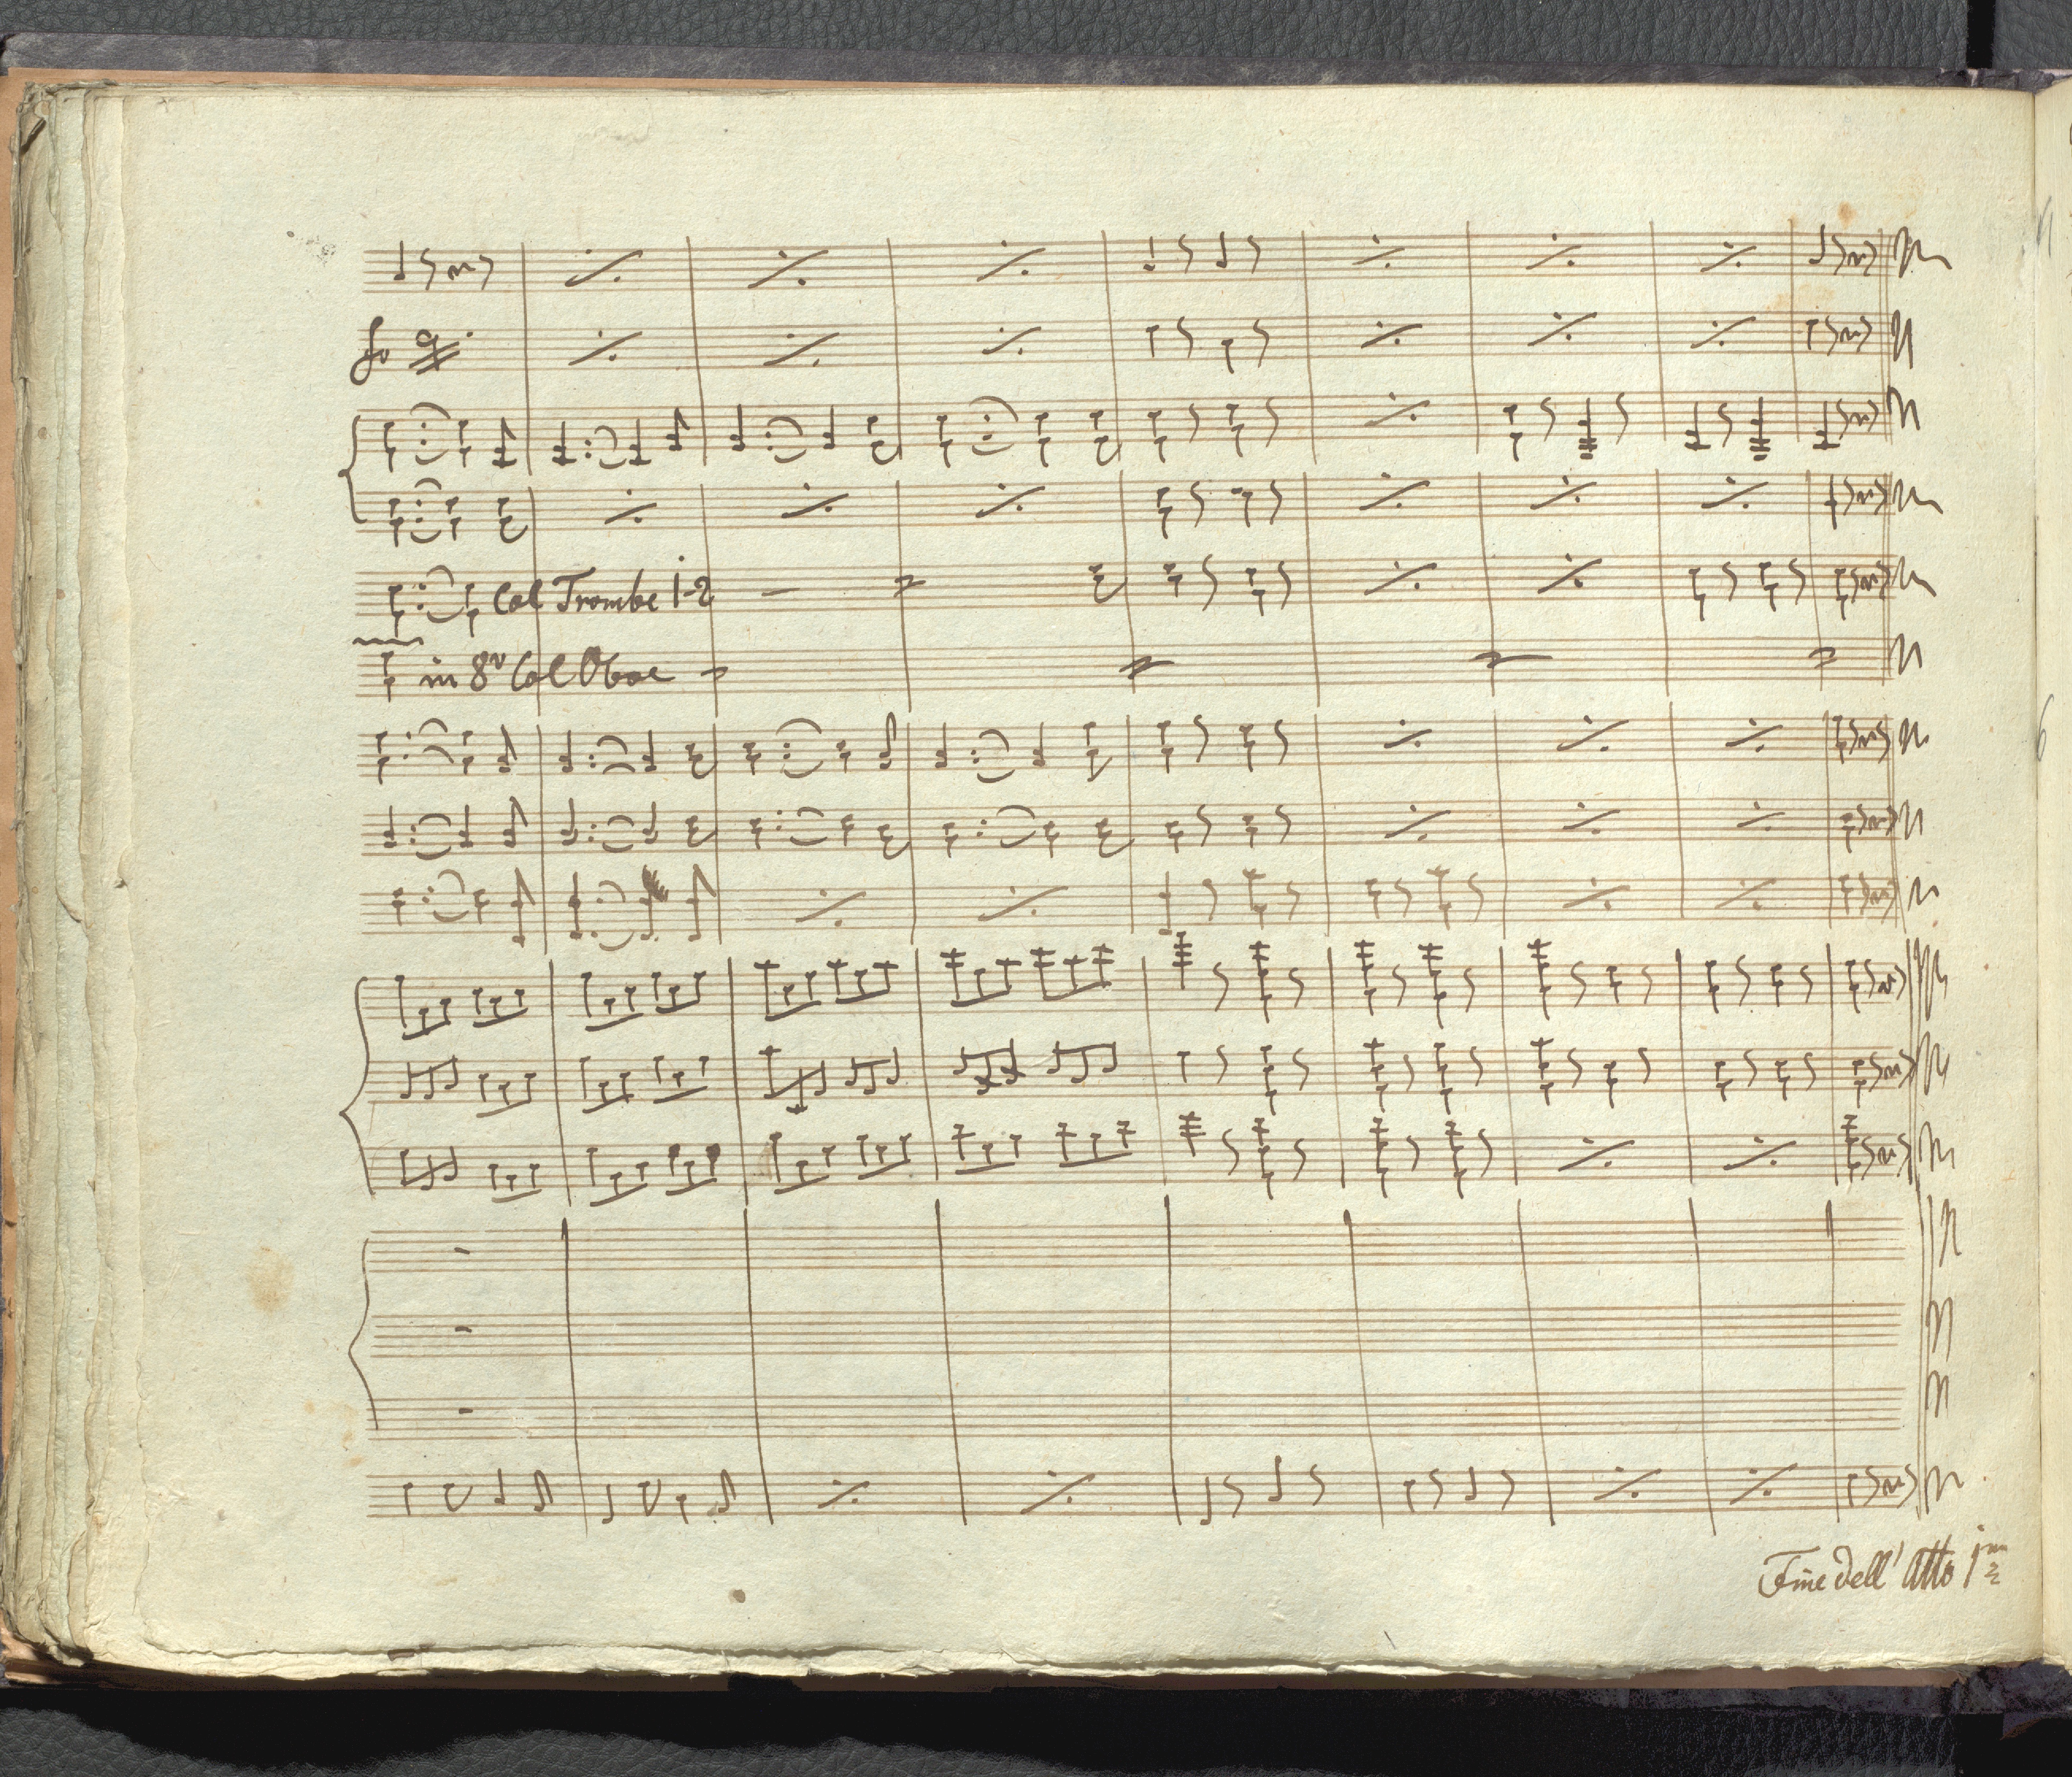 Col Trombe 1-2
in 8va Col Oboe
Fine dell' Atto 1mo